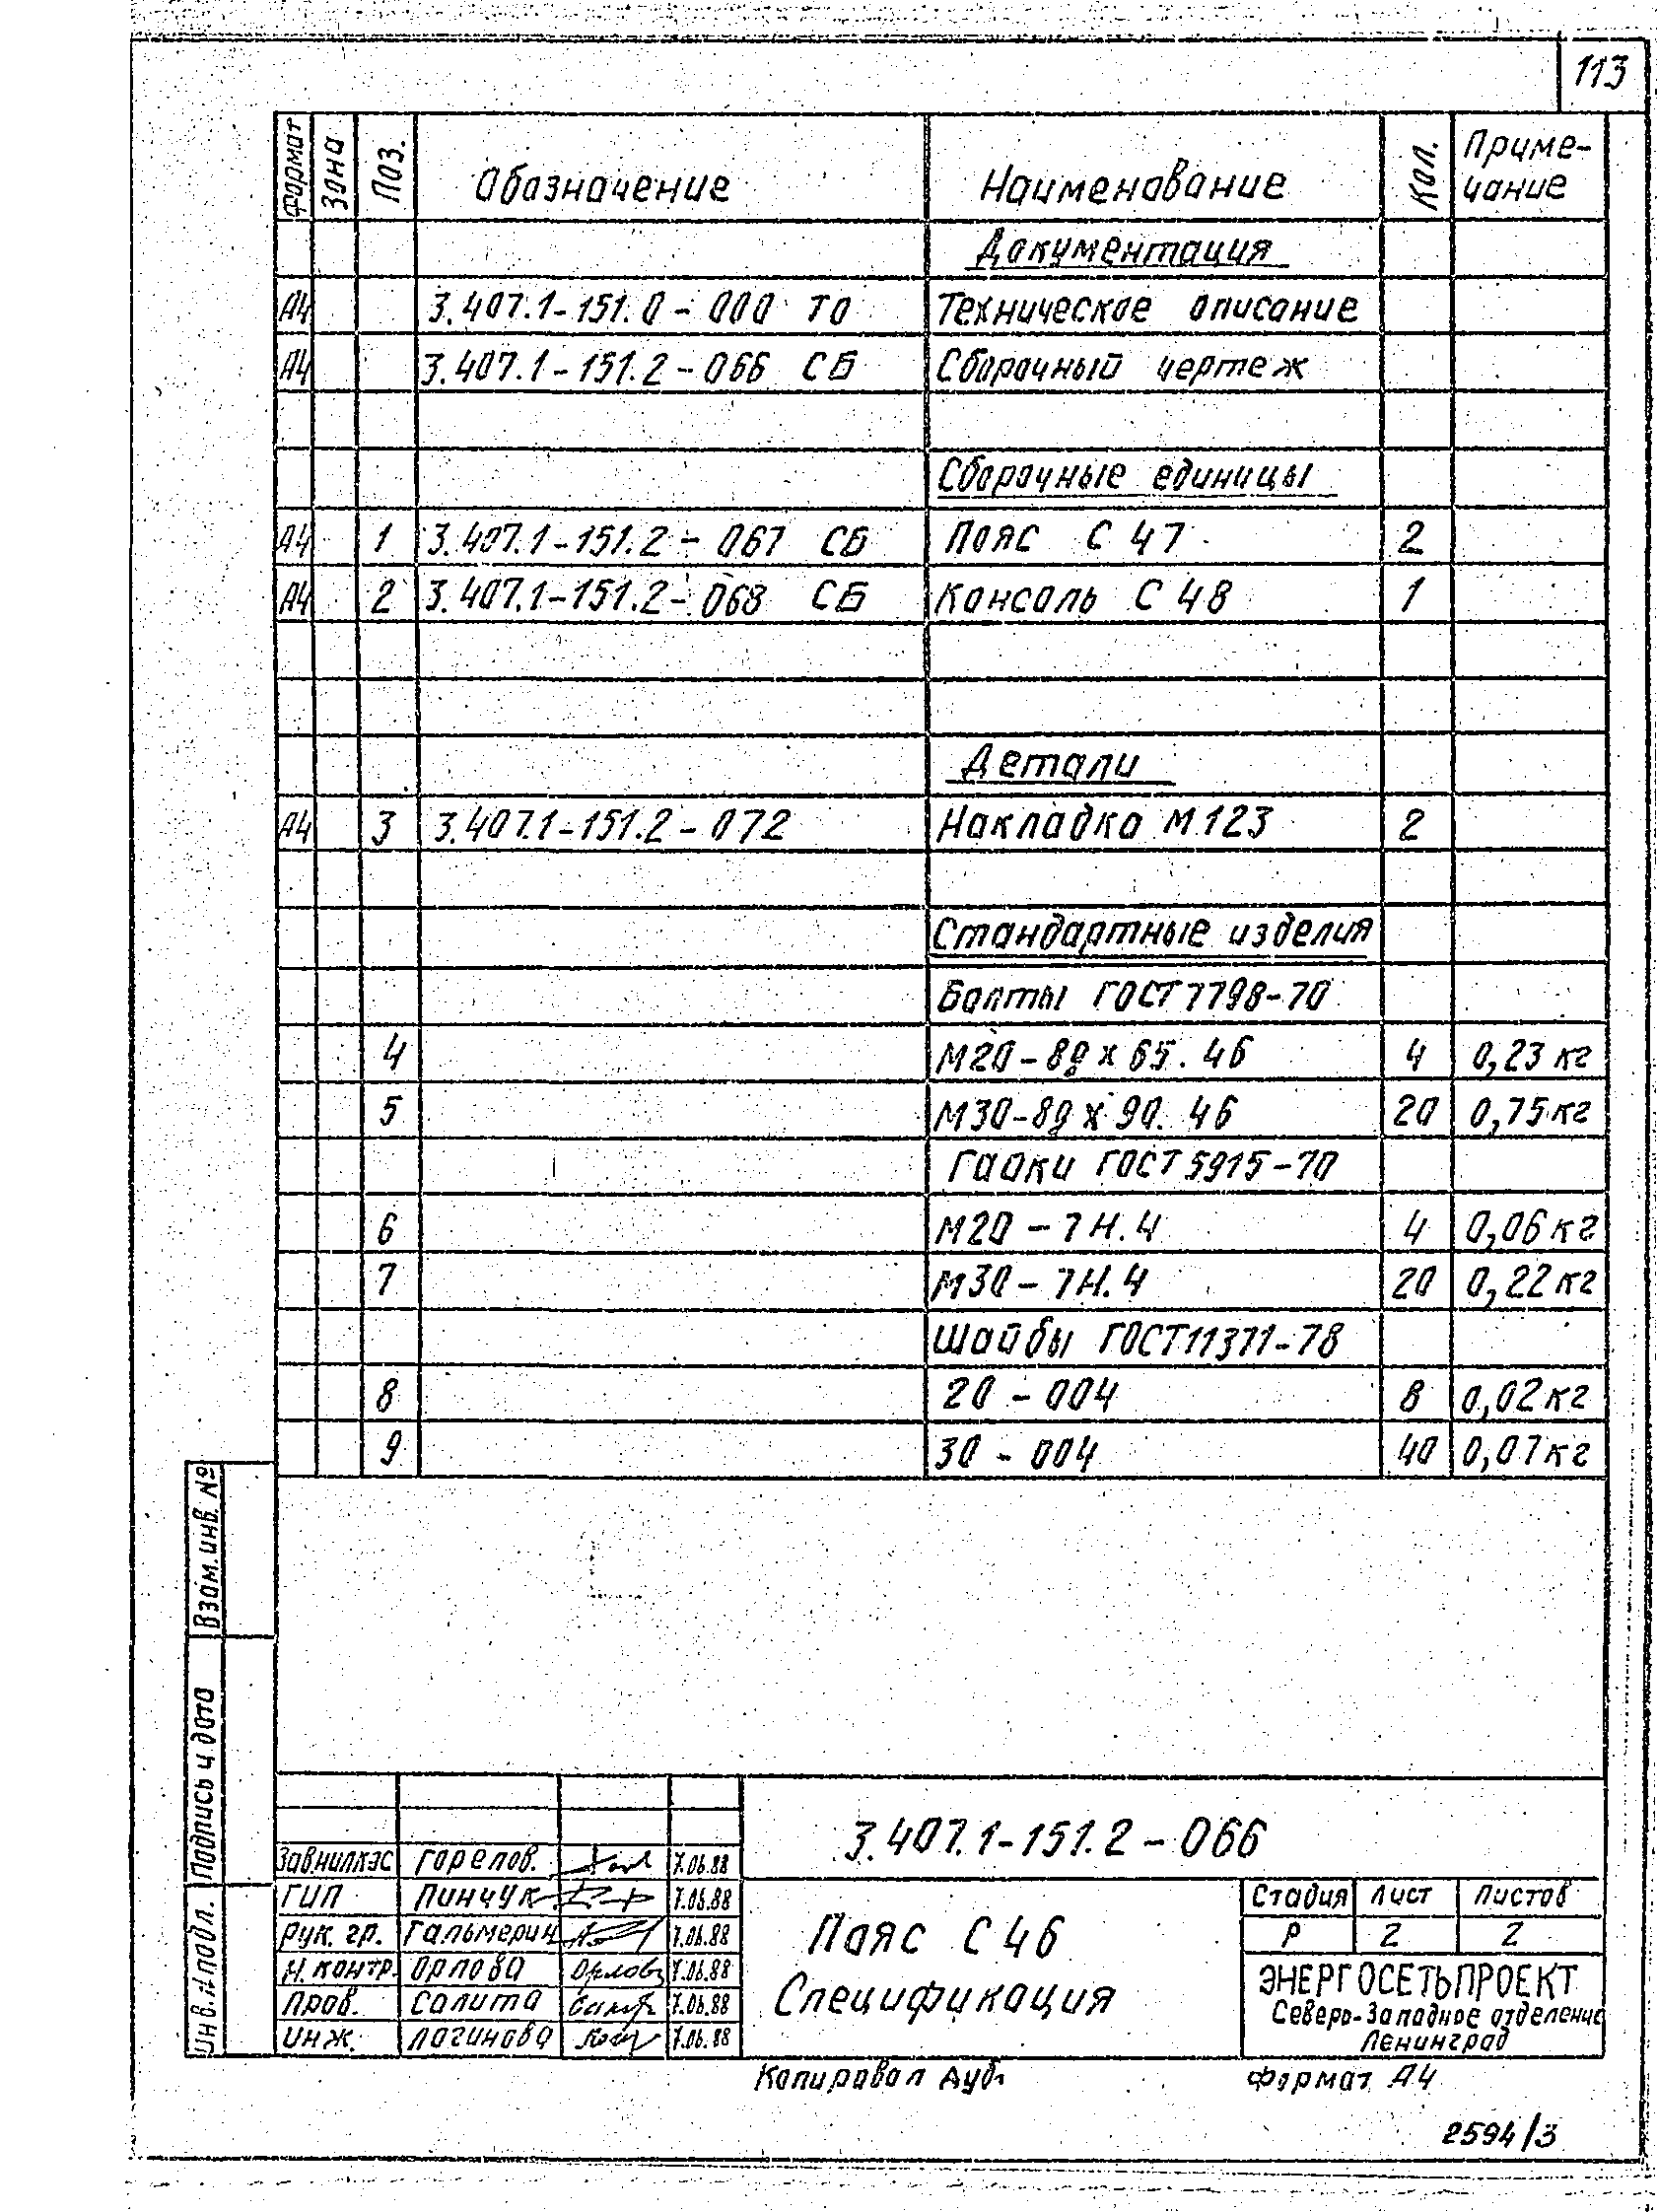 113
Формат Зона Поз. Обозначение Наименование Кол. Приме-
чание
Документация
А4 3.407.1-151.0-000 ТО Техническое описание
А4 3.407.1-151.2-066 СБ Сборочный чертеж
Сборочные единицы
А4 1 3.407.1-151.2-067 СБ Пояс С 47 2
А4 2 3.407.1-151.2-068 СБ Консоль С 48 1
Детали
А4 3 3.407.1-151.2-072 Накладка М123 2
Стандартные изделия
Болты ГОСТ 7798-70
4 М20-8g х 65. 46 4 0,23 кг
5 М30-8g х 90. 46 20 0,75 кг
Гайки ГОСТ 5915-70
6 М20-7Н.4 4 0,06 кг
7 М30-7Н.4 20 0,22 кг
Шайбы ГОСТ 11371-78
8 20-004 8 0,02 кг
9 30-004 40 0,07 кг
Взам. инв. №
Подпись и дата
Инв. № подл.
3.407.1-151.2-066
Завнилкэс Горелов. 7.06.88
ГИП Пинчук 7.06.88
Рук. гр. Гальмерин 7.06.88
Н. контр. Орлова Орлова 7.06.88
Пров. Салита 7.06.88
Инж. Логинова 7.06.88
Пояс С 46
Спецификация
Стадия Лист Листов
Р 2 2
ЭНЕРГОСЕТЬПРОЕКТ
Северо-Западное отделение
Ленинград
Копировал Дуб. Формат А4
2594/3